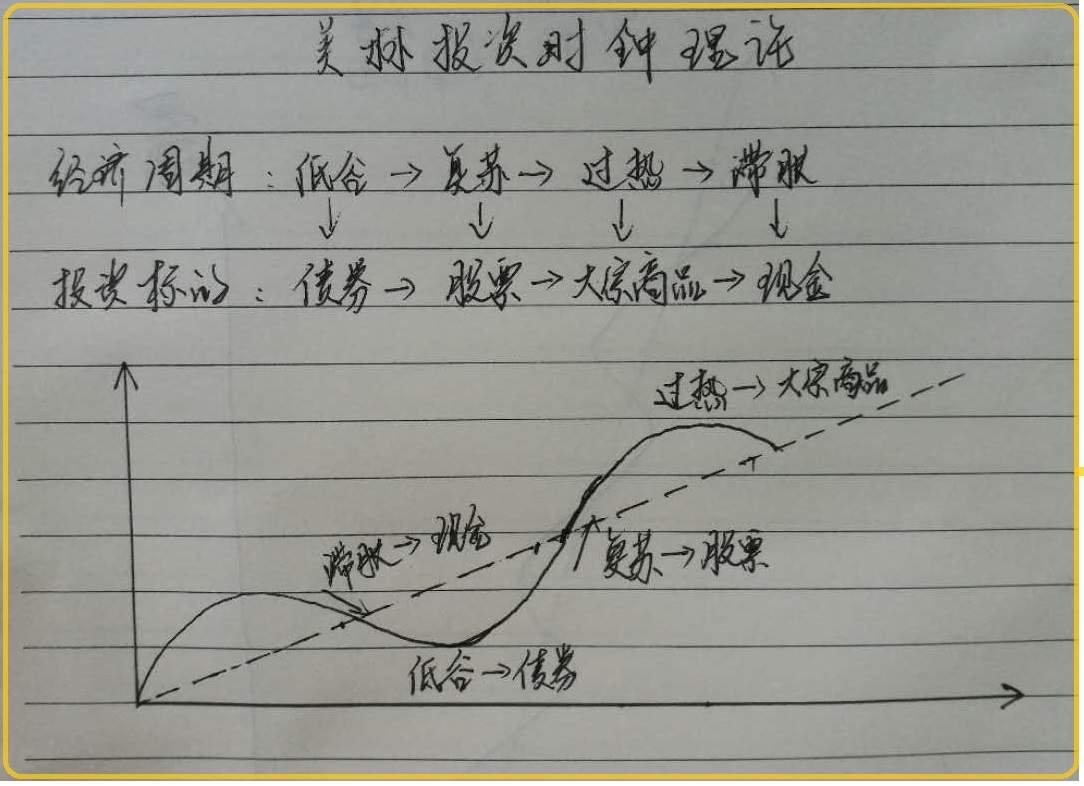 美林投资时钟理论
经济周期：低谷→复苏→过热→滞胀
↓ ↓ ↓ ↓
投资标的：债券→股票→大宗商品→现金
过热→大宗商品
滞胀→现金
复苏→股票
低谷→债券